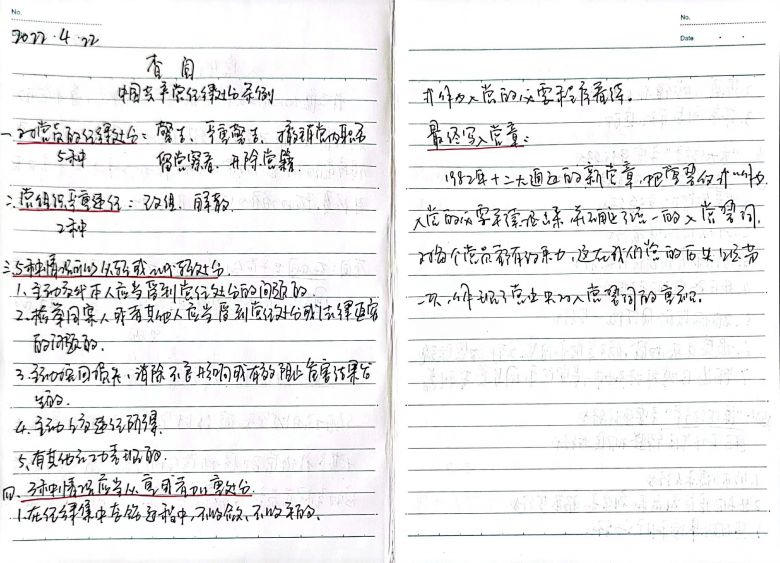 No.
2022.4.22
查阅
中国共产党纪律处分条例
一、对党员的纪律处分：警告、严重警告、撤销党内职务
5种 留党察看、开除党籍
二、党组织严重违纪：改组、解散
2种
三、5种情况可以从轻或减轻处分
1.主动交代本人应当受到党纪处分的问题的
2.检举同案人或者其他人应当受到党纪处分或法律追究
的问题的.
3.主动挽回损失、消除不良影响或有效阻止危害结果发
生的.
4.主动上交违纪所得.
5.有其他立功表现的.
四、3种情况应当从重或者加重处分.
1.在纪律集中整饬过程中,不收敛,不收手的.
No.
Date
并作为入党的必要程序看待。
最终写入党章：
1982年十二大通过的新党章,把宣誓仪式
入党的必要 统一的入党誓词,
对每个党员都有约束力,这在我们党的历史上还第
一次,体现了党中央对入党誓词的重视.